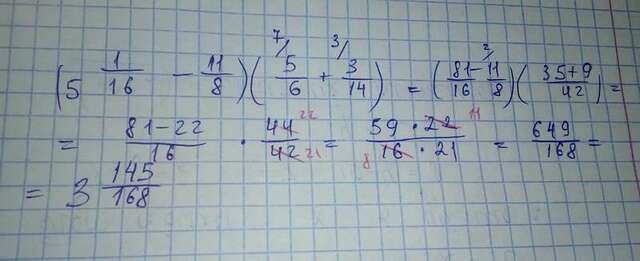 (5 1/16 - 11/8)(7/ 5/6 + 3/ 3/14) = (81/16 - 2/ 11/8)(35+9/42) =
= 81-22/16 · 44/42 22 21 = 59 · 22/16 · 21 11 8 = 649/168 =
= 3 145/168